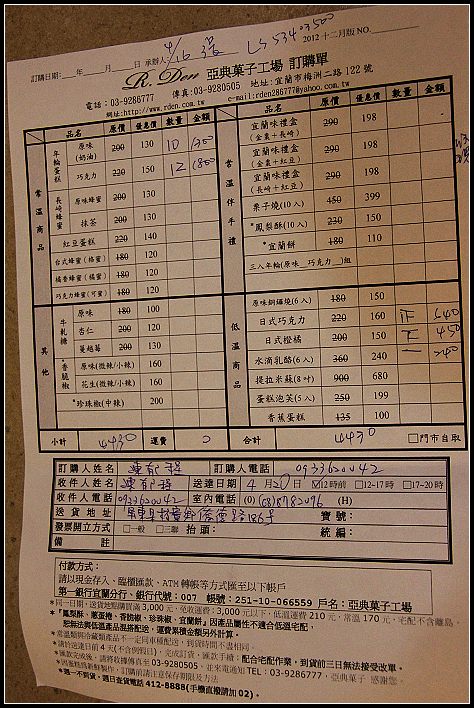 2012 十二月版 NO.
訂購日期: 年 月 日 承辦人
R. Den 亞典菓子工場 訂購單
電話：03-9286777 傳真:03-9280505 地址:宜蘭市梅洲二路122號
網址:http://www.rden.com.tw e-mail:rden286777@yahoo.com.tw
品名 原價 優惠價 數量 金額
常溫商品
年輪蛋糕 原味(奶油) 200 130 10
巧克力 220 150 12 1800
長崎蜂蜜 原味蜂蜜 200 130
抹茶 200 130
紅豆蛋糕 220 140
台式蜂蜜(格蜜) 180 120
橘香蜂蜜(橘蜜) 180 120
巧克力蜂蜜(可蜜) 180 120
其他
牛軋糖 原味 180 100
杏仁 200 120
蔓越莓 200 130
*香脆椒 原味(微辣/小辣) 160
花生(微辣/小辣) 160
*珍珠椒(中辣) 200
品名 原價 優惠價 數量 金額
常溫伴手禮
宜蘭味禮盒(金棗+長崎) 290 198
宜蘭味禮盒(金棗+紅豆) 290 198
宜蘭味禮盒(長崎+紅豆) 290 198
栗子燒(10入) 450 399
*鳳梨酥(10入) 220 150
*宜蘭餅 180 110
三入年輪(原味_巧克力_)組
低溫商品
原味銅鑼燒(6入) 180 150
日式巧克力 220 160 正 640
日式橙橘 200 150 450
水滴乳酪(6入) 360 240 一 240
提拉米蘇(8吋) 900 680
蛋糕泡芙(5入) 250 199
香蕉蛋糕 135 100
小計 4430 運費 0 合計 4430 □門市自取
訂購人姓名 訂購人電話 0933620042
收件人姓名 送達日期 4月20日 ☑12時前 □12-17時 □17~20時
收件人電話 0933620042 室內電話 (O) (08)8782096 (H)
送貨地址 寶號：
發票開立方式 □一般 □三聯 抬頭： 統編：
備註
付款方式：
請以現金存入、臨櫃匯款、ATM轉帳等方式匯至以下帳戶
第一銀行宜蘭分行，銀行代號：007 帳號：251-10-066559 戶名：亞典菓子工場
*同一日期、送貨地點購買滿3,000元,免收運費；3,000元以下，低溫運費210元，常溫170元，宅配不含離島。
*『鳳梨酥、蔥蛋捲、香脆椒、珍珠椒、宜蘭餅』因產品屬性不適合低溫宅配，
恕無法與低溫產品混搭配送，運費累積金額另外計算。
*常溫類與冷藏類產品不一定同車種配送，到貨時間不盡相同。
*請於送達日前4天(不含例假日)，完成訂貨、匯款手續，配合宅配作業，到貨前三日無法接受改單。
*匯款完成後，請將收據傳真至03-9280505，並來電通知 TEL：03-9286777，亞典菓子 感謝您。
*週一不到貨，週日查貨電話 412-8888(手機直撥請加02)。